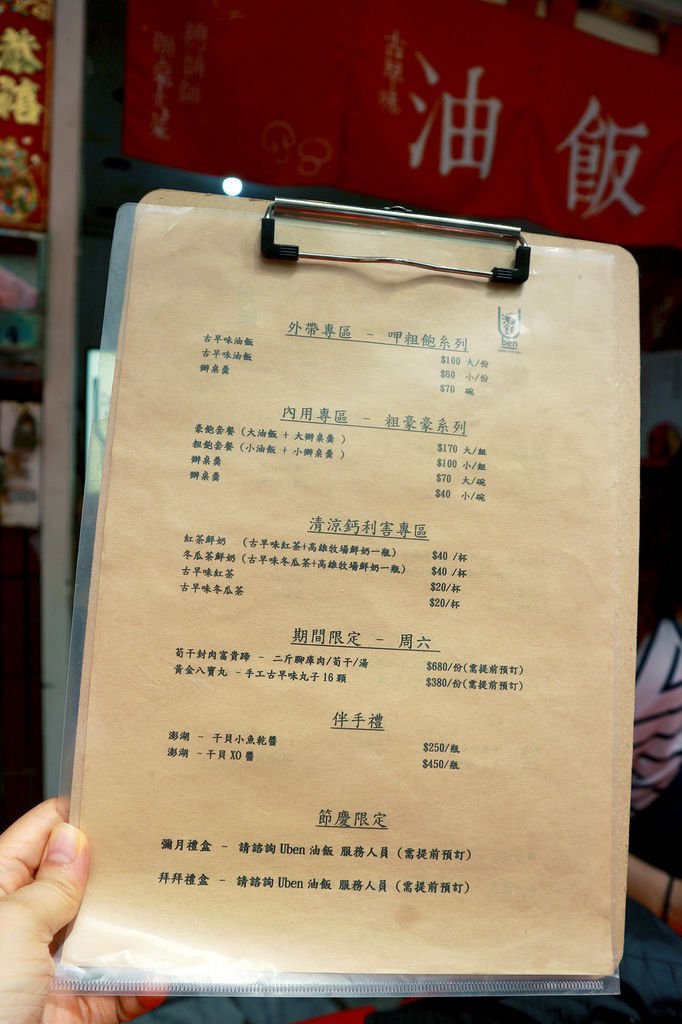 恭禧
總舖師
辦桌羹
古早味
油飯
ben
外帶專區 - 呷粗飽系列
古早味油飯 $100 大/份
古早味油飯 $60 小/份
辦桌羹 $70 碗
內用專區 - 粗豪豪系列
豪飽套餐 (大油飯 + 大辦桌羹 ) $170 大/組
粗飽套餐 (小油飯 + 小辦桌羹 ) $100 小/組
辦桌羹 $70 大/碗
辦桌羹 $40 小/碗
清涼鈣利害專區
紅茶鮮奶 (古早味紅茶+高雄牧場鮮奶一瓶) $40 /杯
冬瓜茶鮮奶 (古早味冬瓜茶+高雄牧場鮮奶一瓶) $40 /杯
古早味紅茶 $20/杯
古早味冬瓜茶 $20/杯
期間限定 - 周六
荀干封肉富貴蹄 - 二斤腳庫肉/荀干/湯 $680/份(需提前預訂)
黃金八寶丸 - 手工古早味丸子 16 顆 $380/份(需提前預訂)
伴手禮
澎湖 - 干貝小魚乾醬 $250/瓶
澎湖 - 干貝 XO 醬 $450/瓶
節慶限定
彌月禮盒 - 請諮詢 Uben 油飯 服務人員 (需提前預訂)
拜拜禮盒 - 請諮詢 Uben 油飯 服務人員 (需提前預訂)